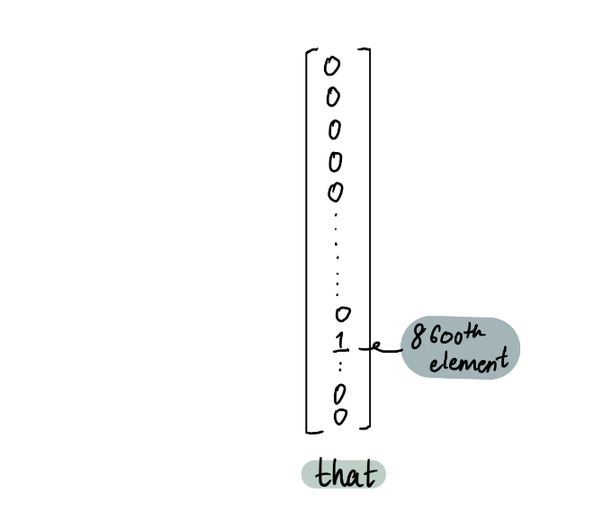 0
0
0
0
0
.
.
.
.
.
.
.
0
1
:
0
0
8600th
element
that